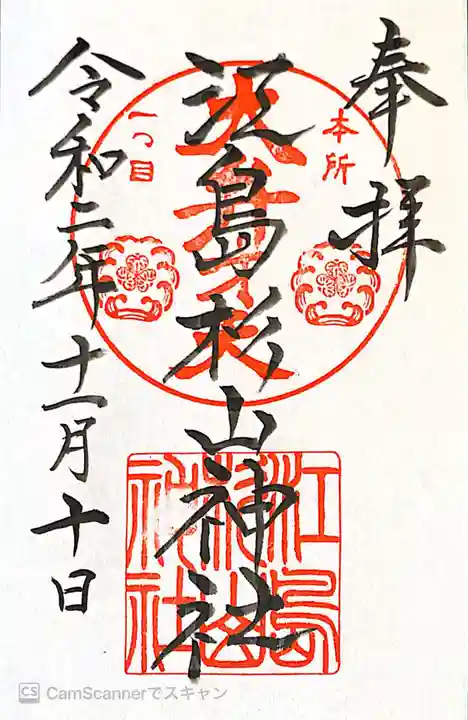 奉拝
本所
江島杉山神社
一つ目
令和二年十一月十日
江島
杉山
神社
CS CamScannerでスキャン